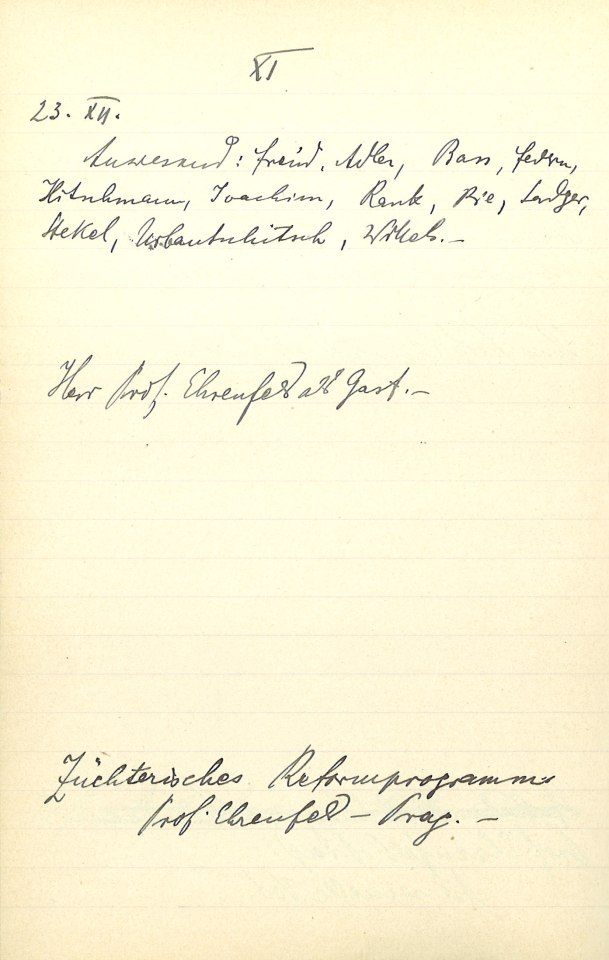 XI
23. XII.
Anwesend: Freud, Adler, Bass, Federn,
Hitschmann, Joachim, Rank, Rie, Sadger,
Stekel, Urbantschitsch, Wittels.-
Herr Prof. Ehrenfels als Gast.-
Züchterisches Reformprogramm:
Prof. Ehrenfels - Prag. -